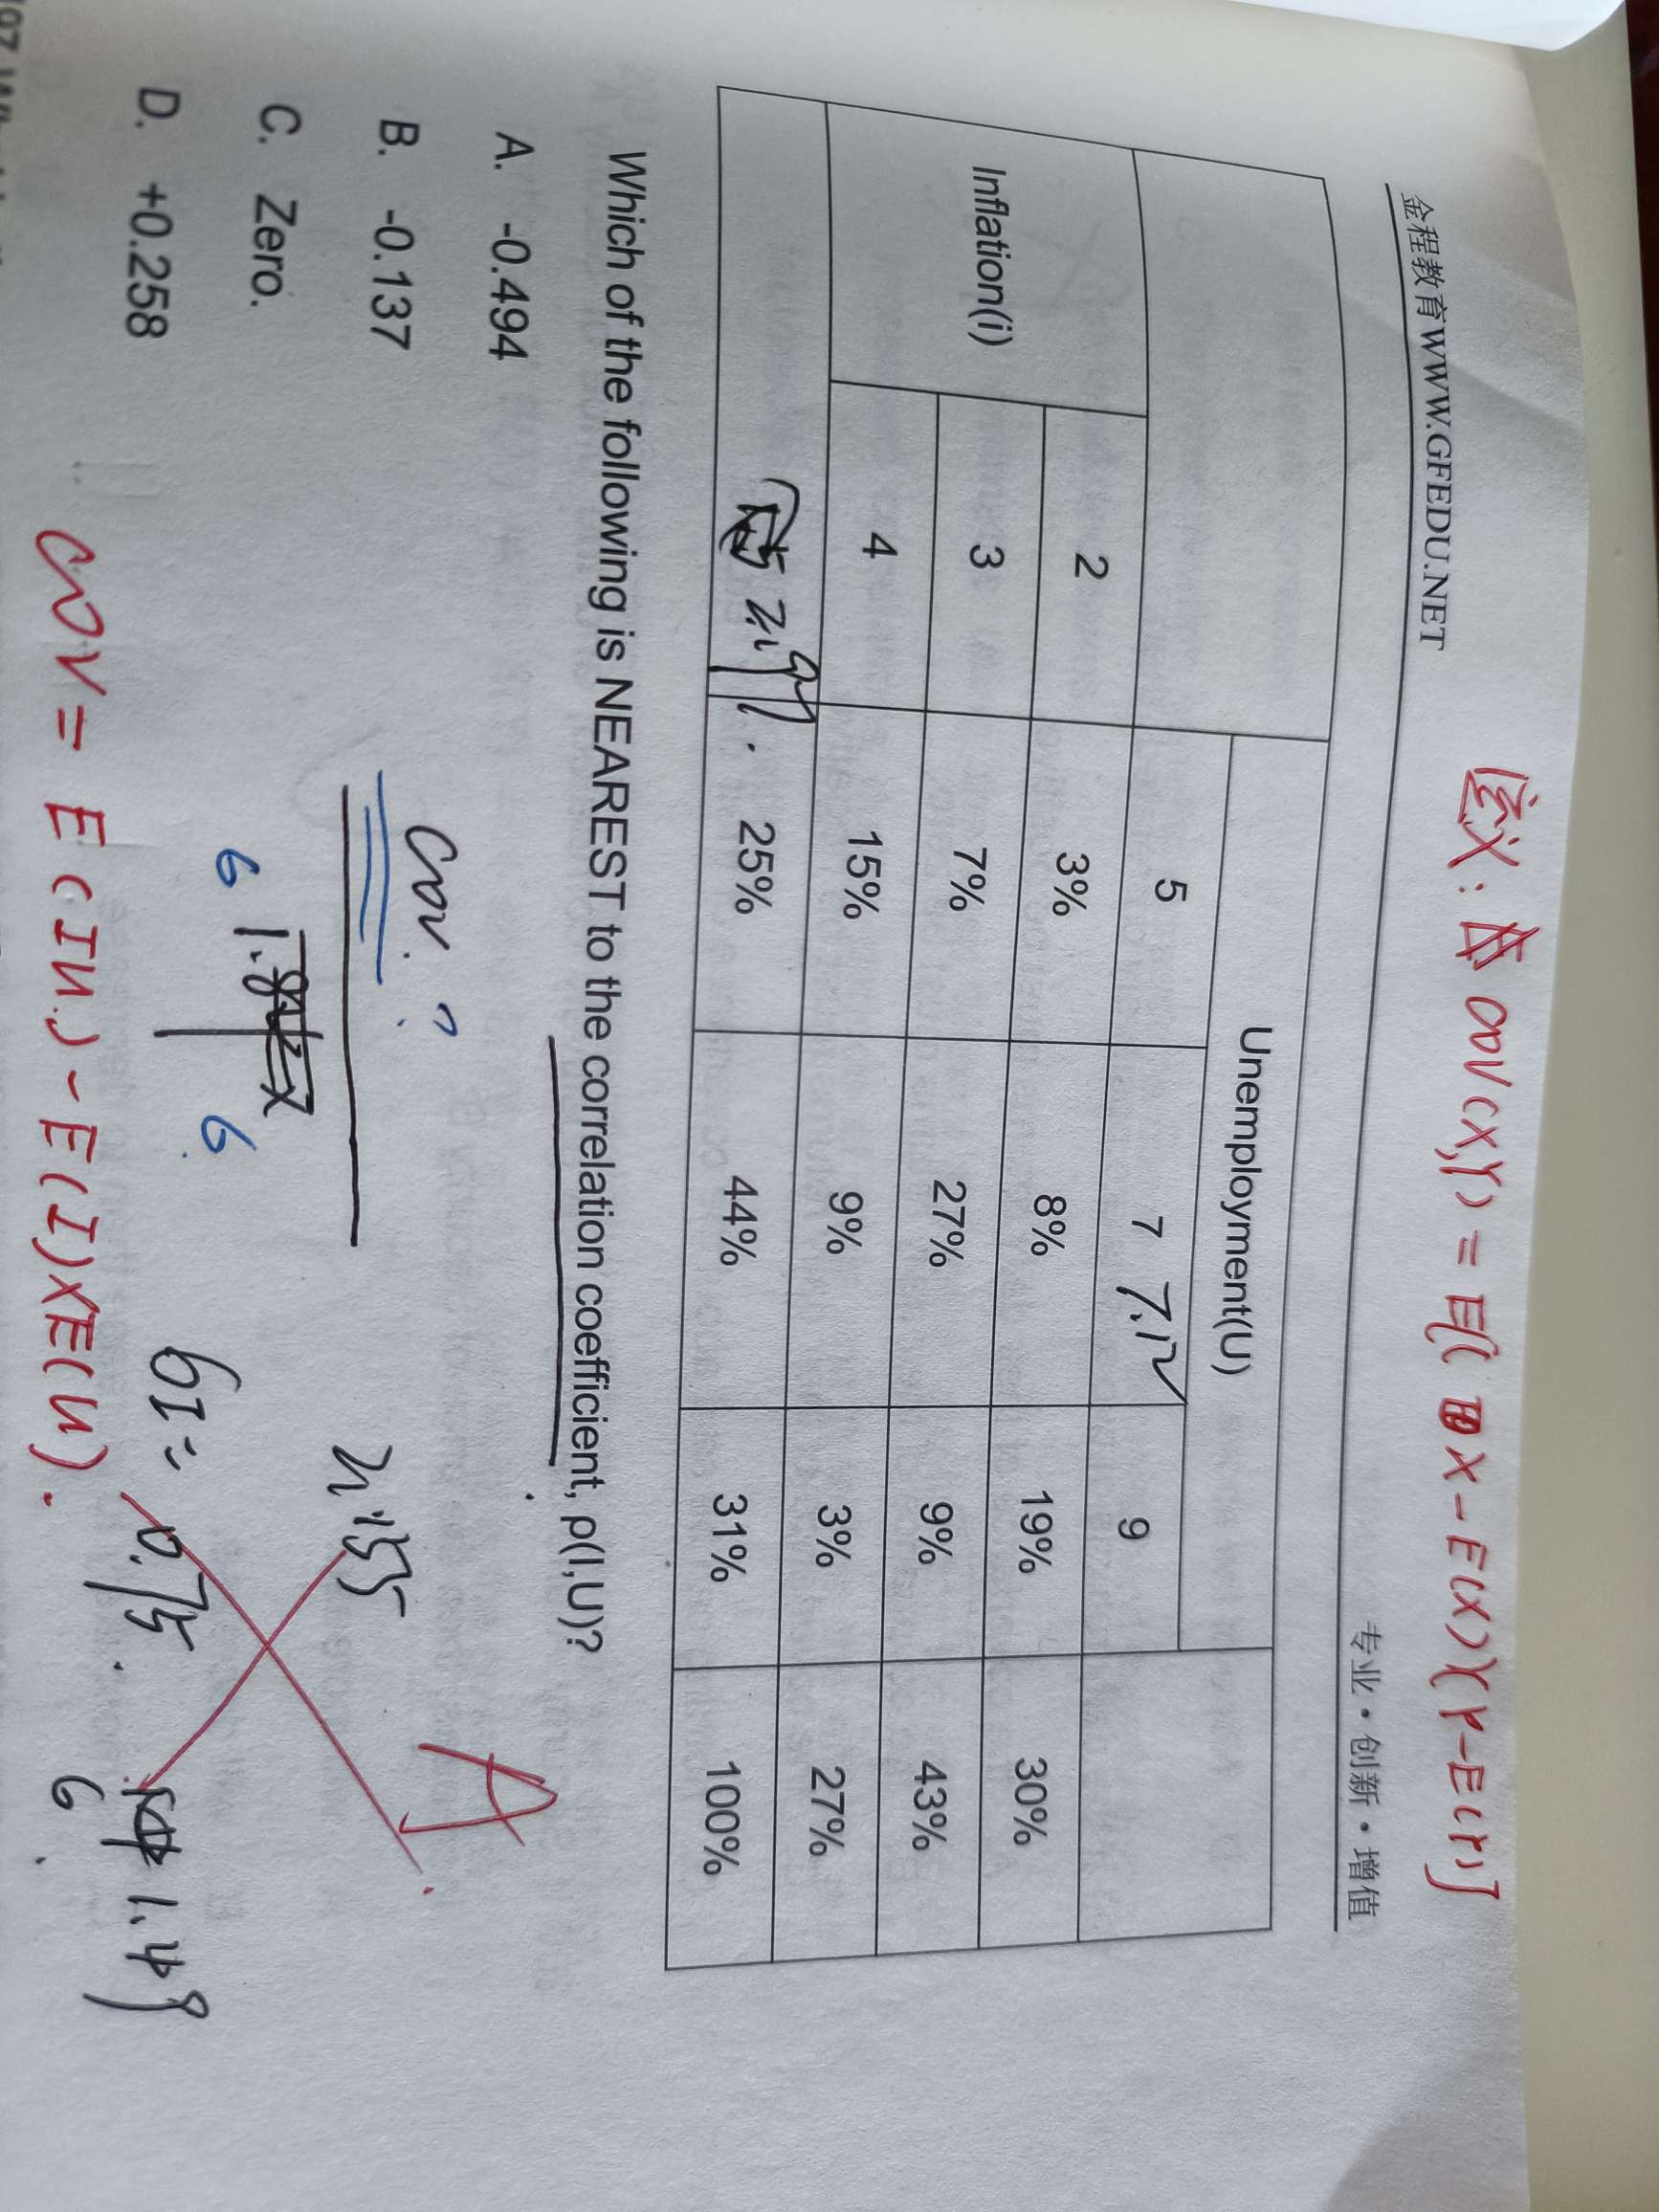 金程教育WWW.GFEDU.NET 专业·创新·增值
: COV(X,Y) = E[( X-E(X))(Y-E(Y)]
Unemployment(U)
5 7 7.12 9
Inflation(i) 2 3% 8% 19% 30%
3 7% 27% 9% 43%
4 15% 9% 3% 27%
25% 44% 31% 100%
Which of the following is NEAREST to the correlation coefficient, ρ(I,U)?
A. -0.494
B. -0.137
C. Zero.
D. +0.258
A
Cov. ?
6 6
6I = 0.75. 1.49
COV = E(IU) - E(I)XE(U).